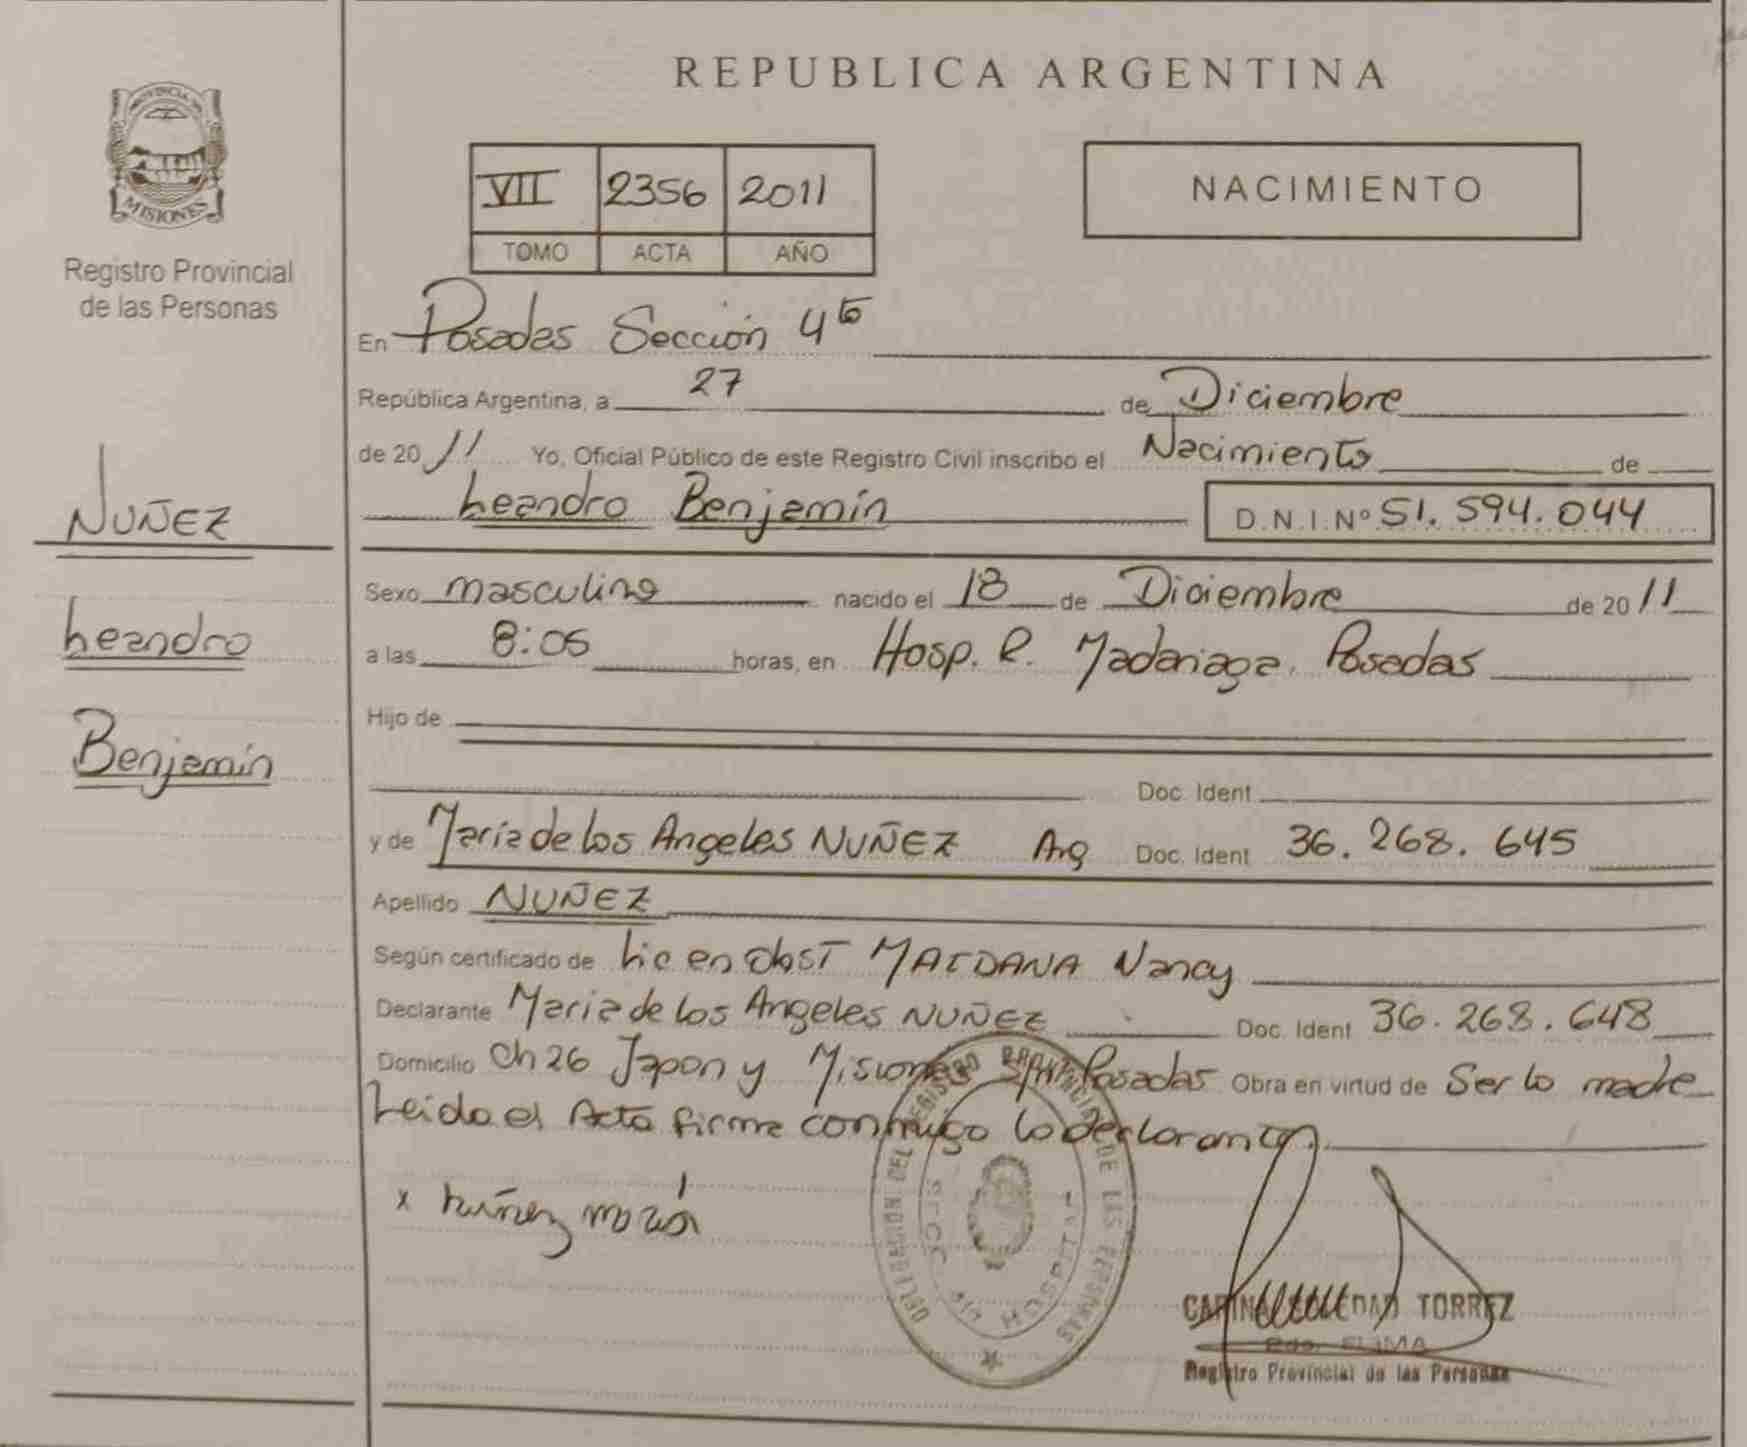 PROVINCIA DE
MISIONES
Registro Provincial
de las Personas
NUÑEZ
Leandro
Benjamín
REPUBLICA ARGENTINA
VII 2356 2011
TOMO ACTA AÑO
NACIMIENTO
En Posadas Sección 4ta
República Argentina, a 27 de Diciembre
de 2011 Yo, Oficial Público de este Registro Civil inscribo el Nacimiento de
Leandro Benjamín D.N.I.Nº 51.594.044
Sexo masculino nacido el 18 de Diciembre de 2011
a las 8:05 horas, en Hosp. R. Madariaga. Posadas
Hijo de
Doc. Ident
y de Maria de los Angeles NUÑEZ Arg Doc. Ident 36.268.645
Apellido NUÑEZ
Según certificado de Lic en Obst Nancy
Declarante Maria de los Angeles NUÑEZ Doc. Ident 36.268.648
Domicilio Ch 26 Japon y Misiones Posadas Obra en virtud de Ser la madre
Leida el Acta firma conmigo la declarante.
x Nuñez maria
DELEGACION DEL REGISTRO PROVINCIAL DE LAS PERSONAS
CARINA SOLEDAD TORREZ
Registro Provincial de las Personas